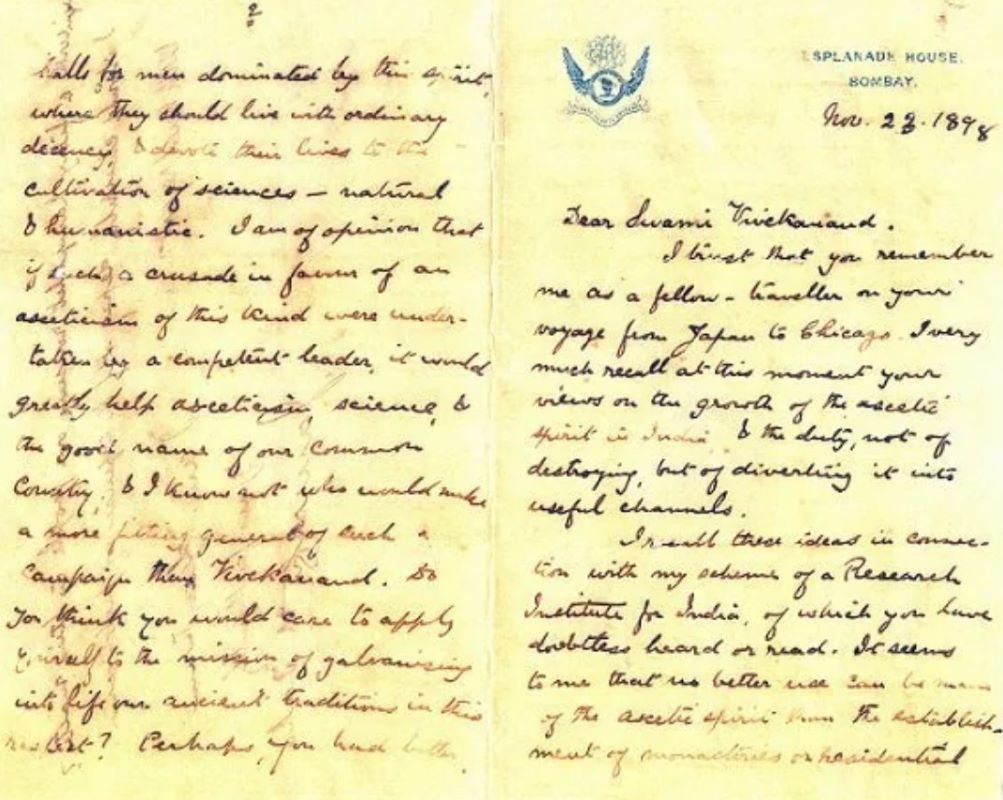 ESPLANADE HOUSE,
BOMBAY.
Nov. 23. 1898
Dear Swami Vivekanand.
I trust that you remember
me as a fellow-traveller on your
voyage from Japan to Chicago. I very
much recall at this moment your
views on the growth of the ascetic
spirit in India & the duty, not of
destroying, but of diverting it into
useful channels.
I recall these ideas in connec-
tion with my scheme of a Research
Institute for India, of which you have
doubtless heard or read. It seems
to me that no better use can be made
of the ascetic spirit than the establish-
ment of monasteries or residential
2
halls for men dominated by this spirit,
where they should live with ordinary
decency, & devote their lives to the
cultivation of sciences – natural
& humanistic. I am of opinion that
if such a crusade in favour of an
asceticism of this kind were under-
taken by a competent leader, it would
greatly help asceticism, science, &
the good name of our common
country, & I know not who would make
a more fitting general of such a
campaign than Vivekanand. Do
you think you would care to apply
yourself to the mission of galvanising
into life our ancient traditions in this
respect? Perhaps, you had better